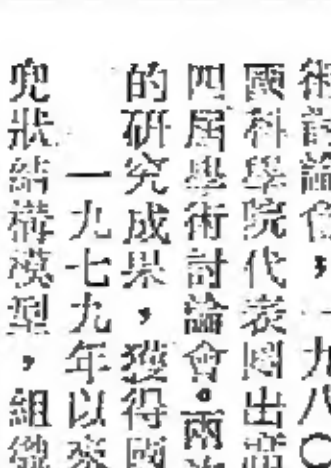 術討論會，一九八〇
國科學院代表團出證
四屆學術討論會。兩
的研究成果，獲得國
一九七九年以來
兜狀結構模型，組織